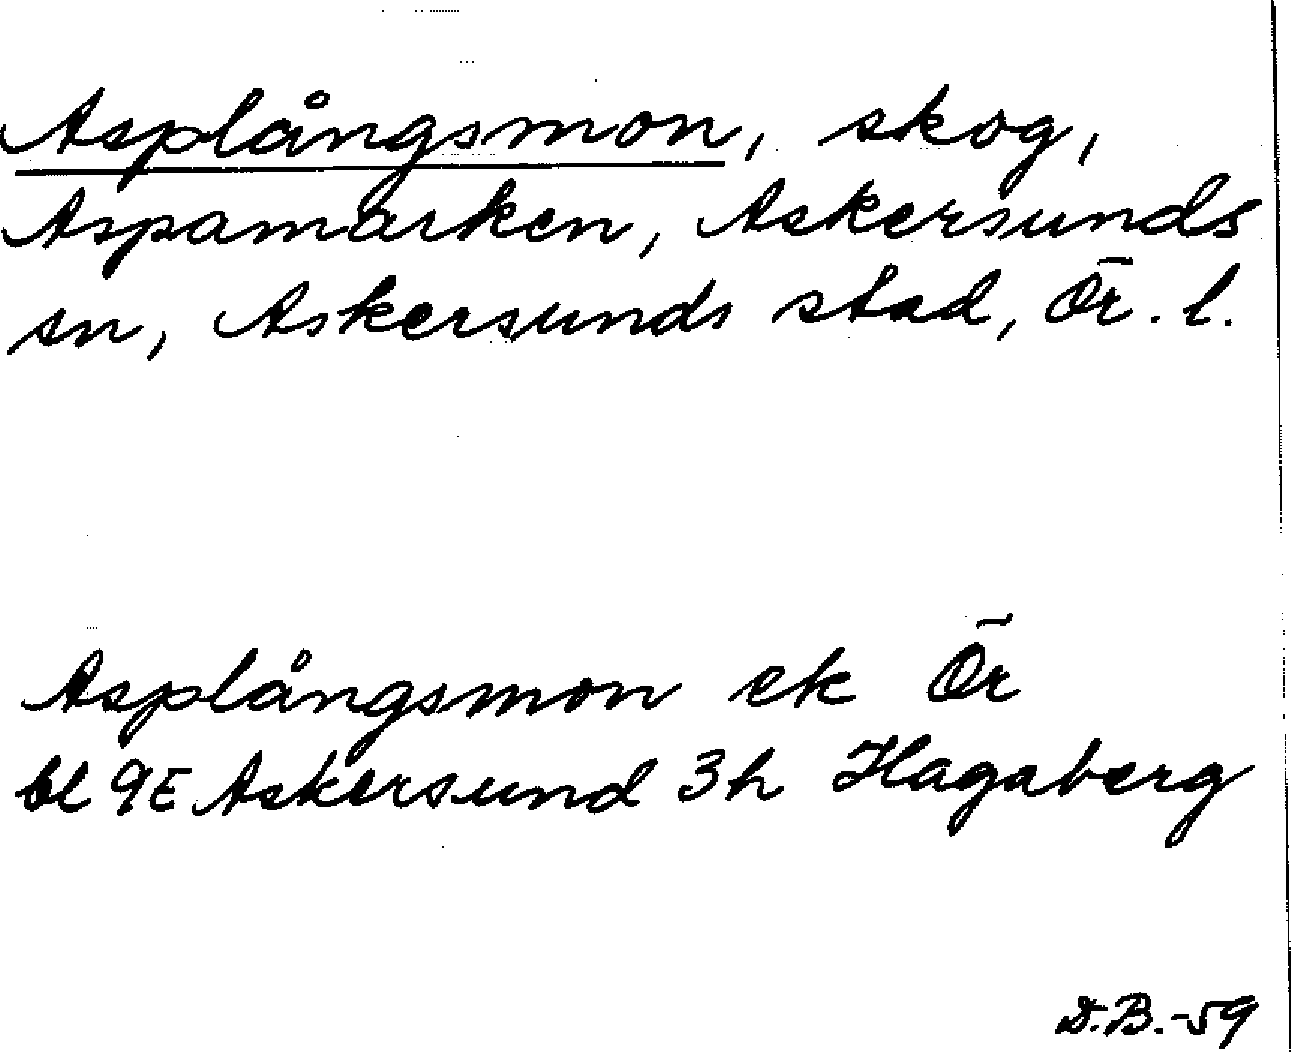 Asplångsmon, skog,
Aspamarken, Askersunds
sn, Askersunds stad, Ör. l.
Asplångsmon ek Ör
bl 9E Askersund 3h Hagaberg
D.B.-59